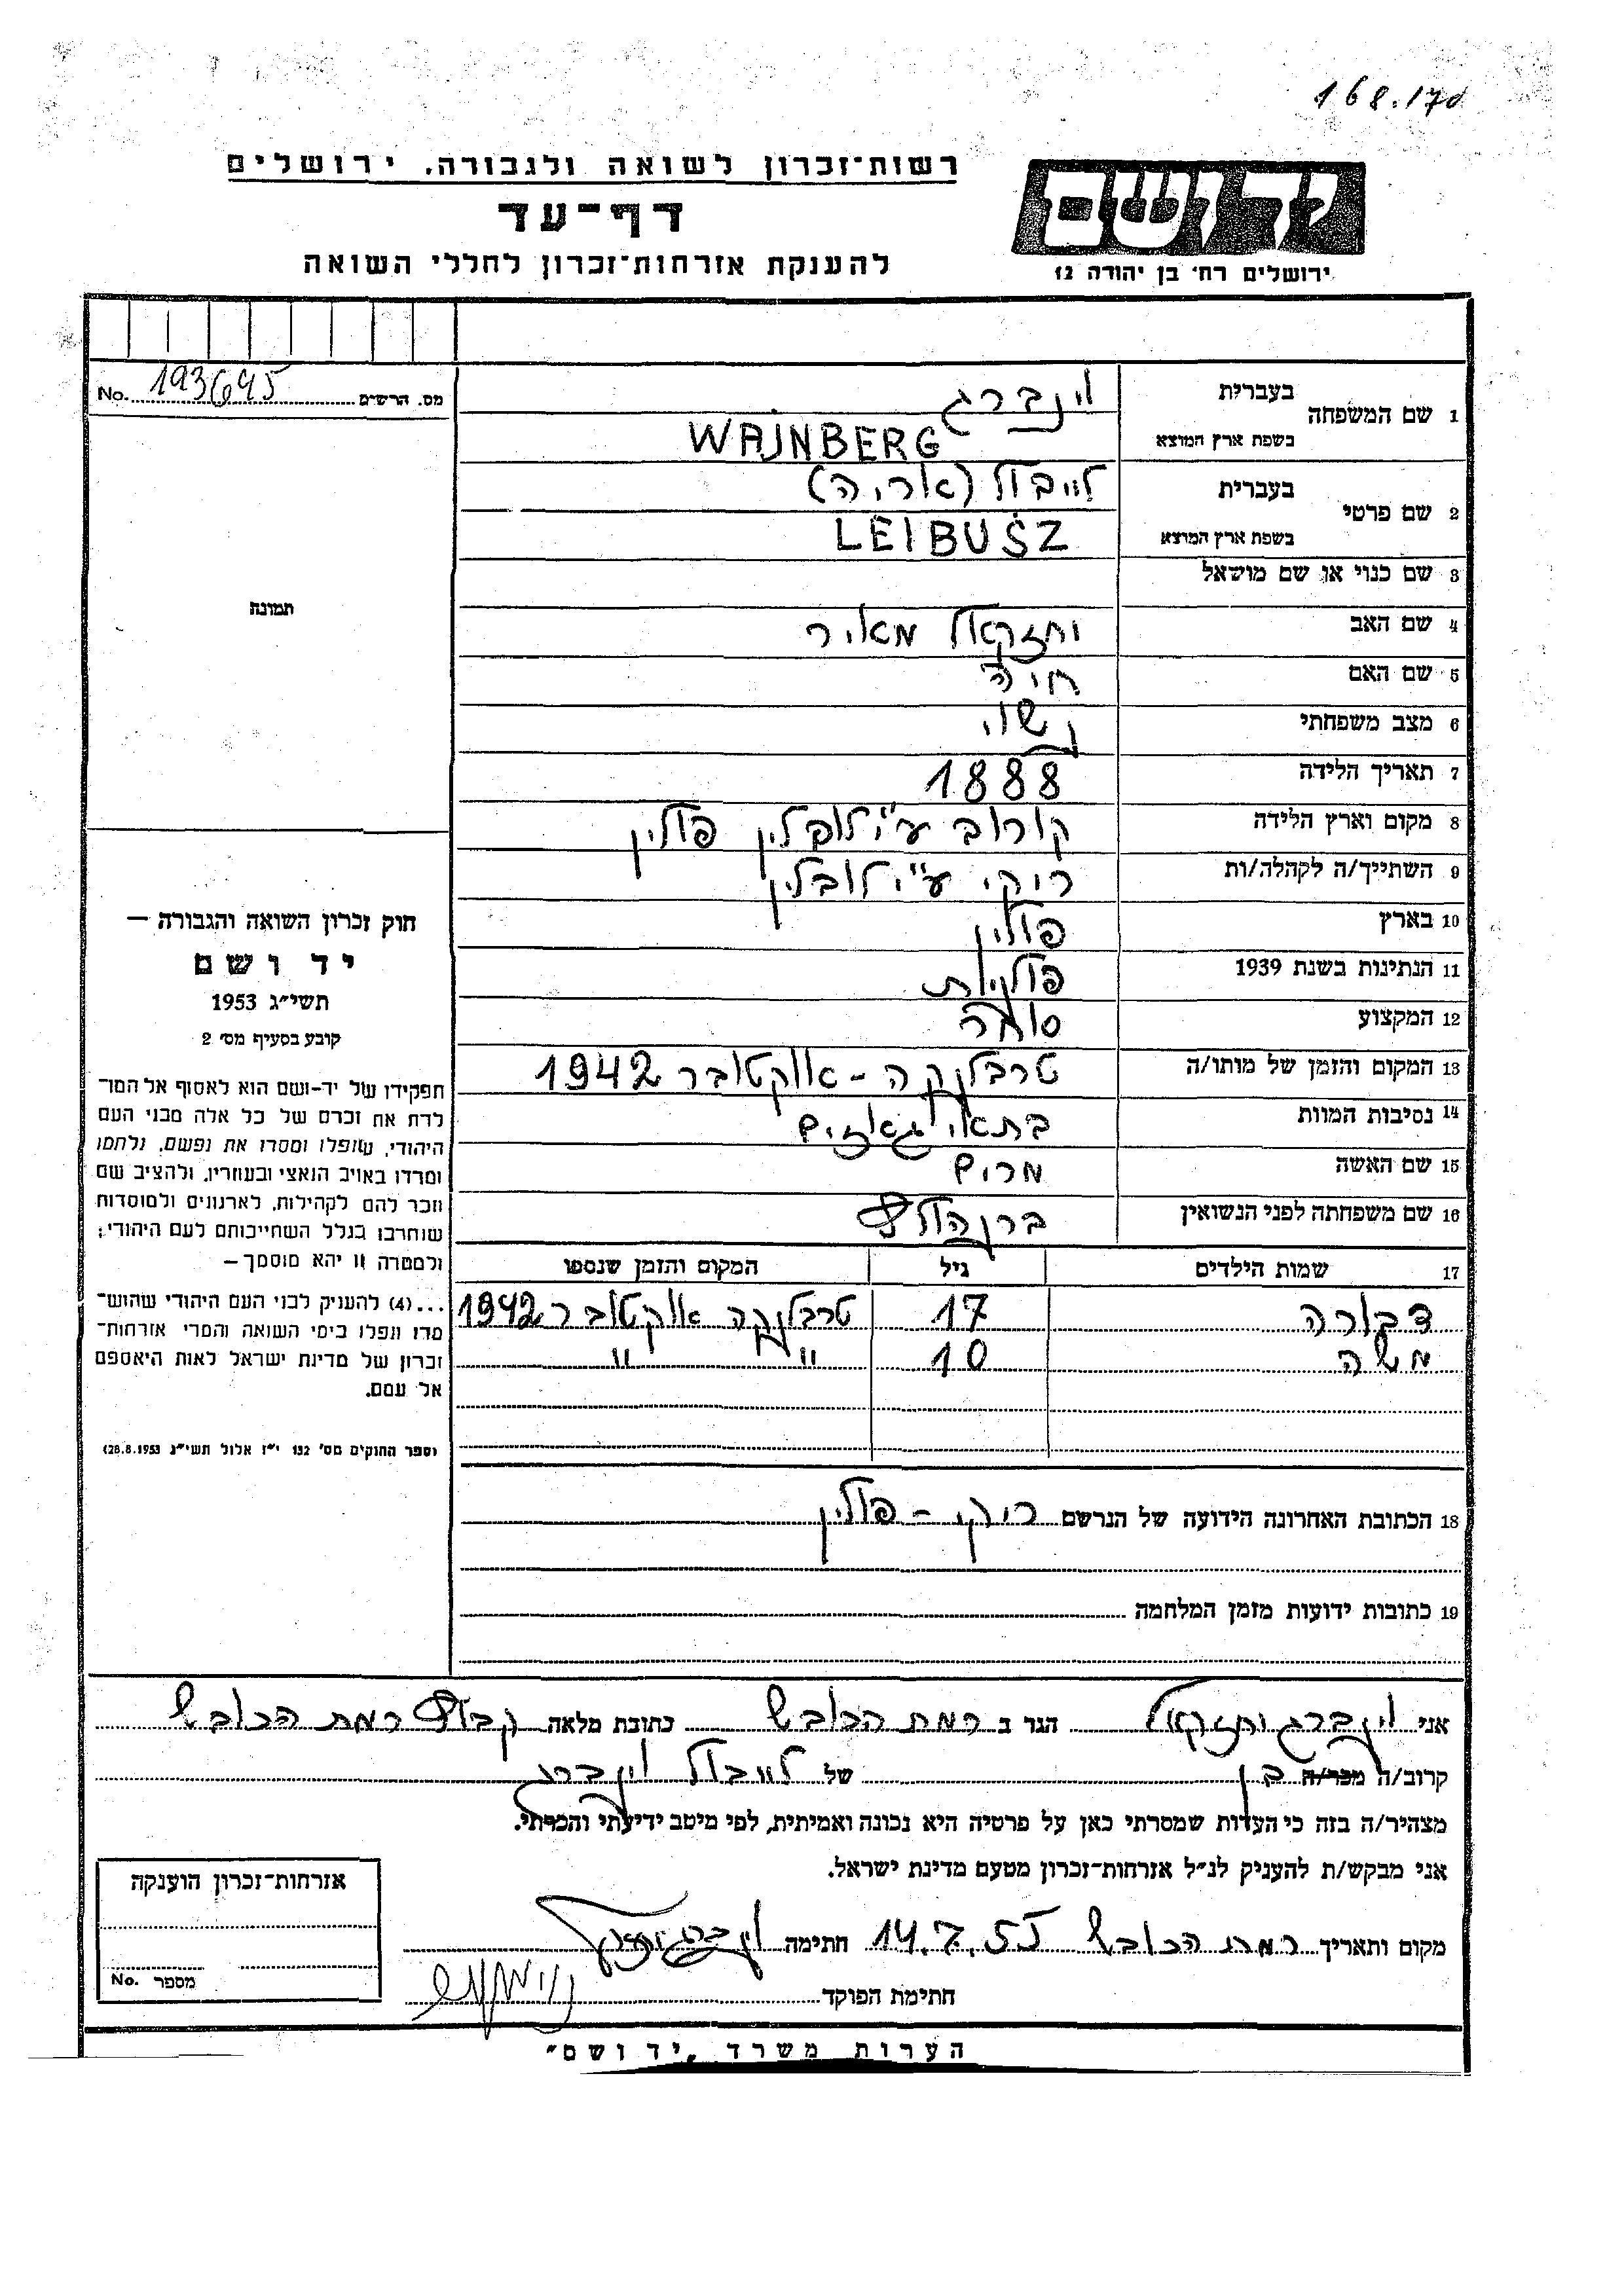 168.170
רשות־זכרון לשואה ולגבורה, ירושלים
יד ושם
דף־עד
להענקת אזרחות־זכרון לחללי השואה
ירושלים רח׳ בן יהודה 12
מס. הרשים No. 193645
1 שם המשפחה בעברית וינברג
בשפת ארץ המוצא WAJNBERG
2 שם פרטי בעברית לייבוש (אריה)
בשפת ארץ המוצא LEIBUSZ
3 שם כנוי או שם מושאל
תמונה
4 שם האב יחזקאל מאיר
5 שם האם חיה
6 מצב משפחתי נשוי
7 תאריך הלידה 1888
8 מקום וארץ הלידה קורוב ע״י לובלין פולין
9 השתייך/ה לקהלה/ות ריקי ע״י לובלין
10 בארץ פולין
11 הנתינות בשנת 1939 פולנית
12 המקצוע סוחר
13 המקום והזמן של מותו/ה טרבלינקה - אוקטובר 1942
14 נסיבות המוות בתאי גאזים
15 שם האשה מרים
16 שם משפחתה לפני הנשואין
17 שמות הילדים גיל המקום והזמן שנספו
דבורה 17 טרבלינקה אוקטובר 1942
משה 10 " "
חוק זכרון השואה והגבורה —
יד ושם
תשי״ג 1953
קובע בסעיף מס׳ 2
תפקידו של יד-ושם הוא לאסוף אל המו־
לדת את זכרם של כל אלה מבני העם
היהודי, שנפלו ומסרו את נפשם, נלחמו
ומרדו באויב הנאצי ובעוזריו, ולהציב שם
וזכר להם לקהילות, לארגונים ולמוסדות
שנחרבו בגלל השתייכותם לעם היהודי;
ולמטרה זו יהא מוסמך —
...(4) להעניק לבני העם היהודי שהוש־
מדו ונפלו בימי השואה והמרי אזרחות־
זכרון של מדינת ישראל לאות היאספם
אל עמם.
(ספר החוקים מס׳ 132 י״ז אלול תשי״ג 28.8.1953)
18 הכתובת האחרונה הידועה של הנרשם ריקי - פולין
19 כתובות ידועות מזמן המלחמה
אני וינברג יחזקאל הגר ב רמת הכובש כתובת מלאה קבוץ רמת הכובש
קרוב/ה מכר/ה בן של לייבוש וינברג
מצהיר/ה בזה כי העדות שמסרתי כאן על פרטיה היא נכונה ואמיתית, לפי מיטב ידיעתי והכרתי.
אני מבקש/ת להעניק לנ״ל אזרחות־זכרון מטעם מדינת ישראל.
מקום ותאריך רמת הכובש 14.7.55 חתימה וינברג יחזקאל
חתימת הפוקד
אזרחות־זכרון הוענקה
מספר No.
הערות משרד „יד ושם״